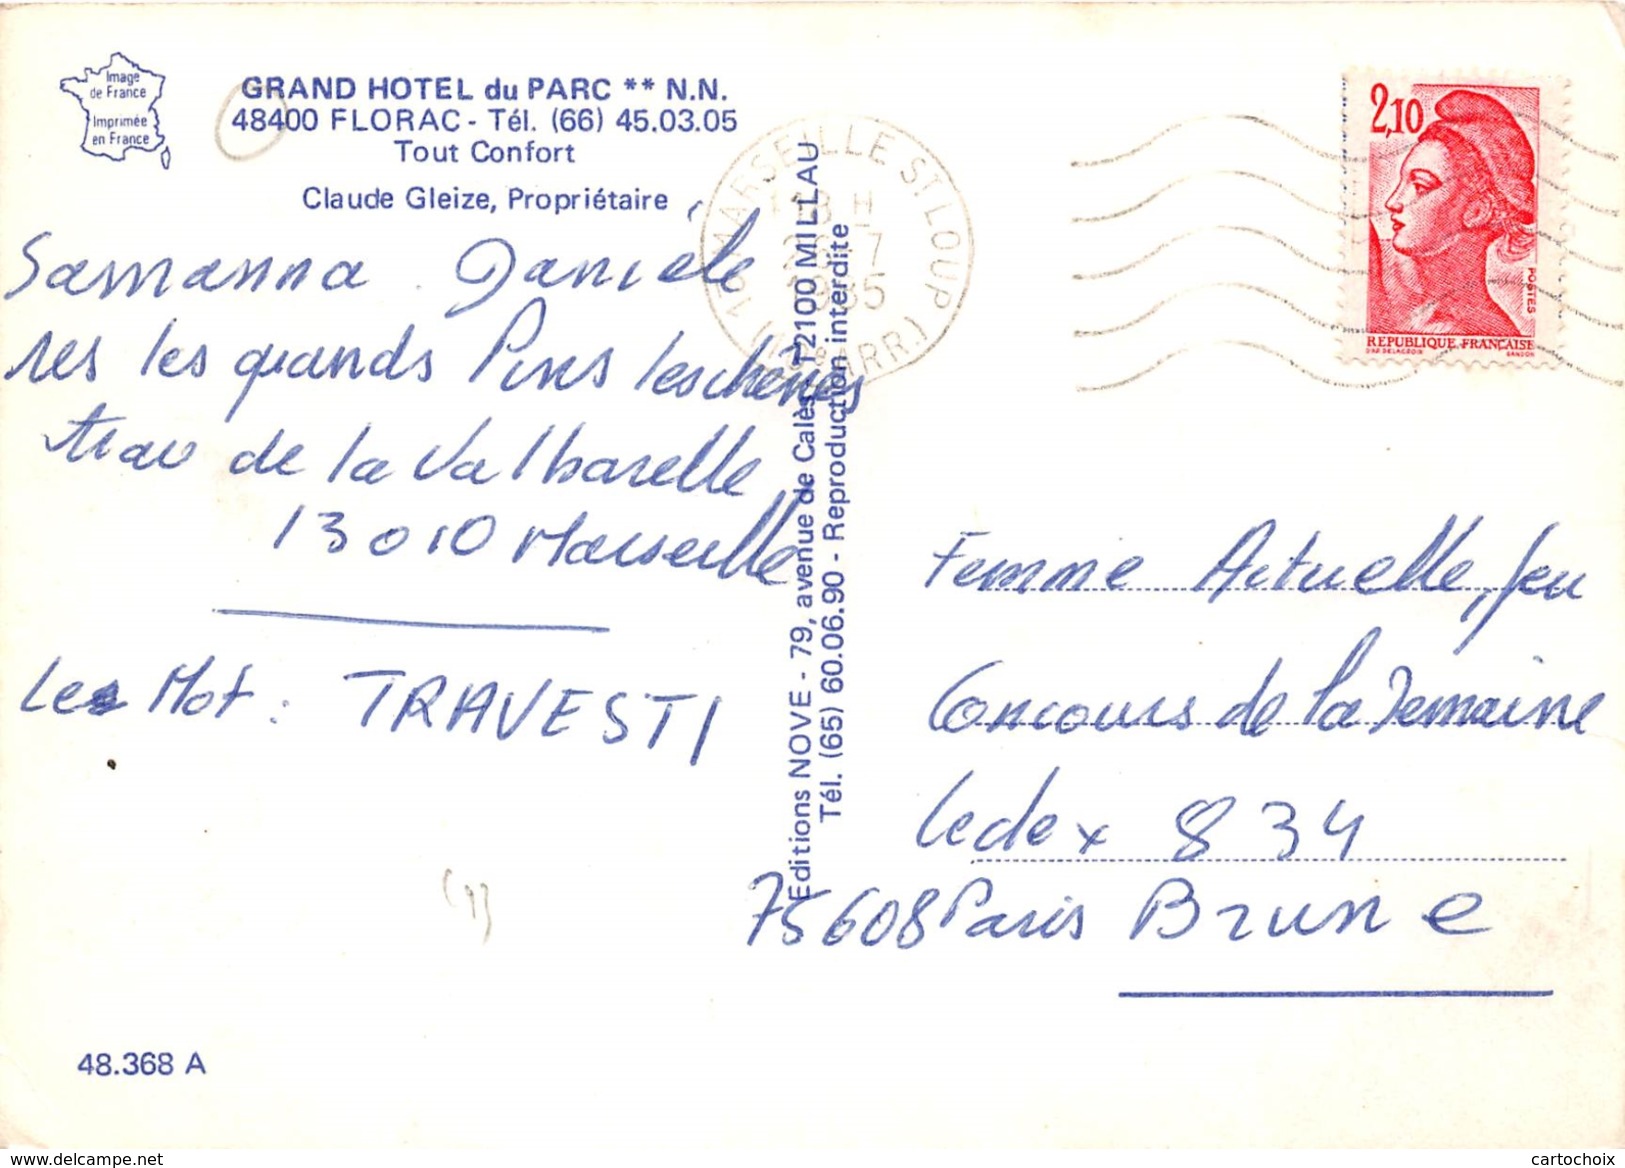 Image
de France
Imprimée
en France
GRAND HOTEL du PARC ** N.N.
48400 FLORAC - Tél. (66) 45.03.05
Tout Confort
Claude Gleize, Propriétaire
Samanna Danièle
res les grands Pins les chênes
trav de la Valbarelle
13010 Marseille
Le Mot : TRAVESTI
48.368 A
Editions NOVE - 79, avenue de Calès, 12100 MILLAU
Tél. (65) 60.06.90 - Reproduction interdite
13 MARSEILLE ST LOUP
18 H
26-7
1985
ARR.)
2,10
POSTES
REPUBLIQUE FRANÇAISE
D'AP. DELACROIX
GANDON
Femme Actuelle, Jeu
Concours de la Semaine
Cedex 834
75608 Paris Brune
delcampe.net
cartochoix